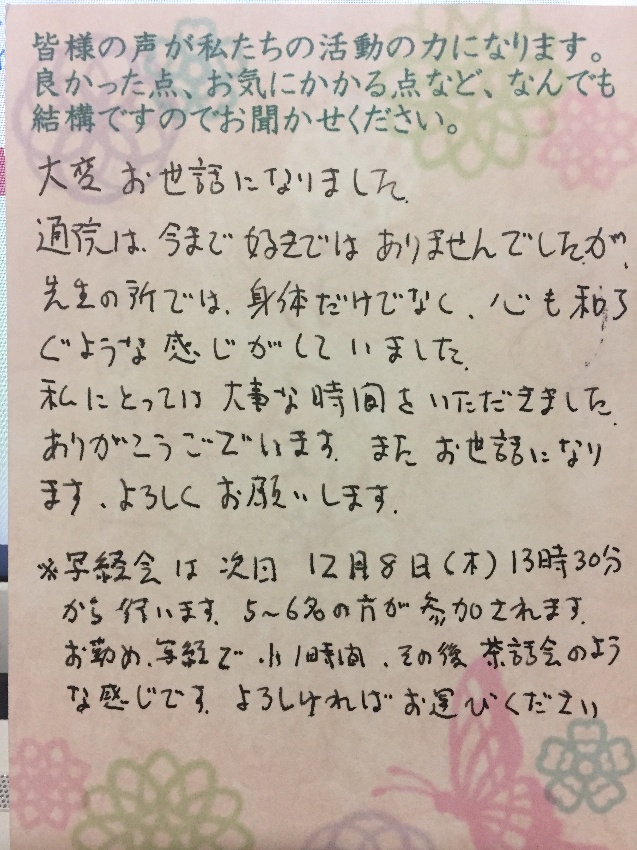 皆様の声が私たちの活動の力になります。
良かった点、お気にかかる点など、なんでも
結構ですのでお聞かせください。
大変 お世話になりました。
通院は、今まで 好きでは ありませんでしたが、
先生の所では、身体だけでなく、心も 和ら
ぐような 感じがして いました。
私にとっては 大事な時間を いただきました。
ありがとうございます。また お世話になり
ます、よろしく お願いします。
※写経会 は 次回 12月8日(木) 13時30分
から 行います。5〜6名の方が 参加されます。
お勤め、写経で 小1時間、その後 茶話会のよう
な感じです。よろしければ お運びください